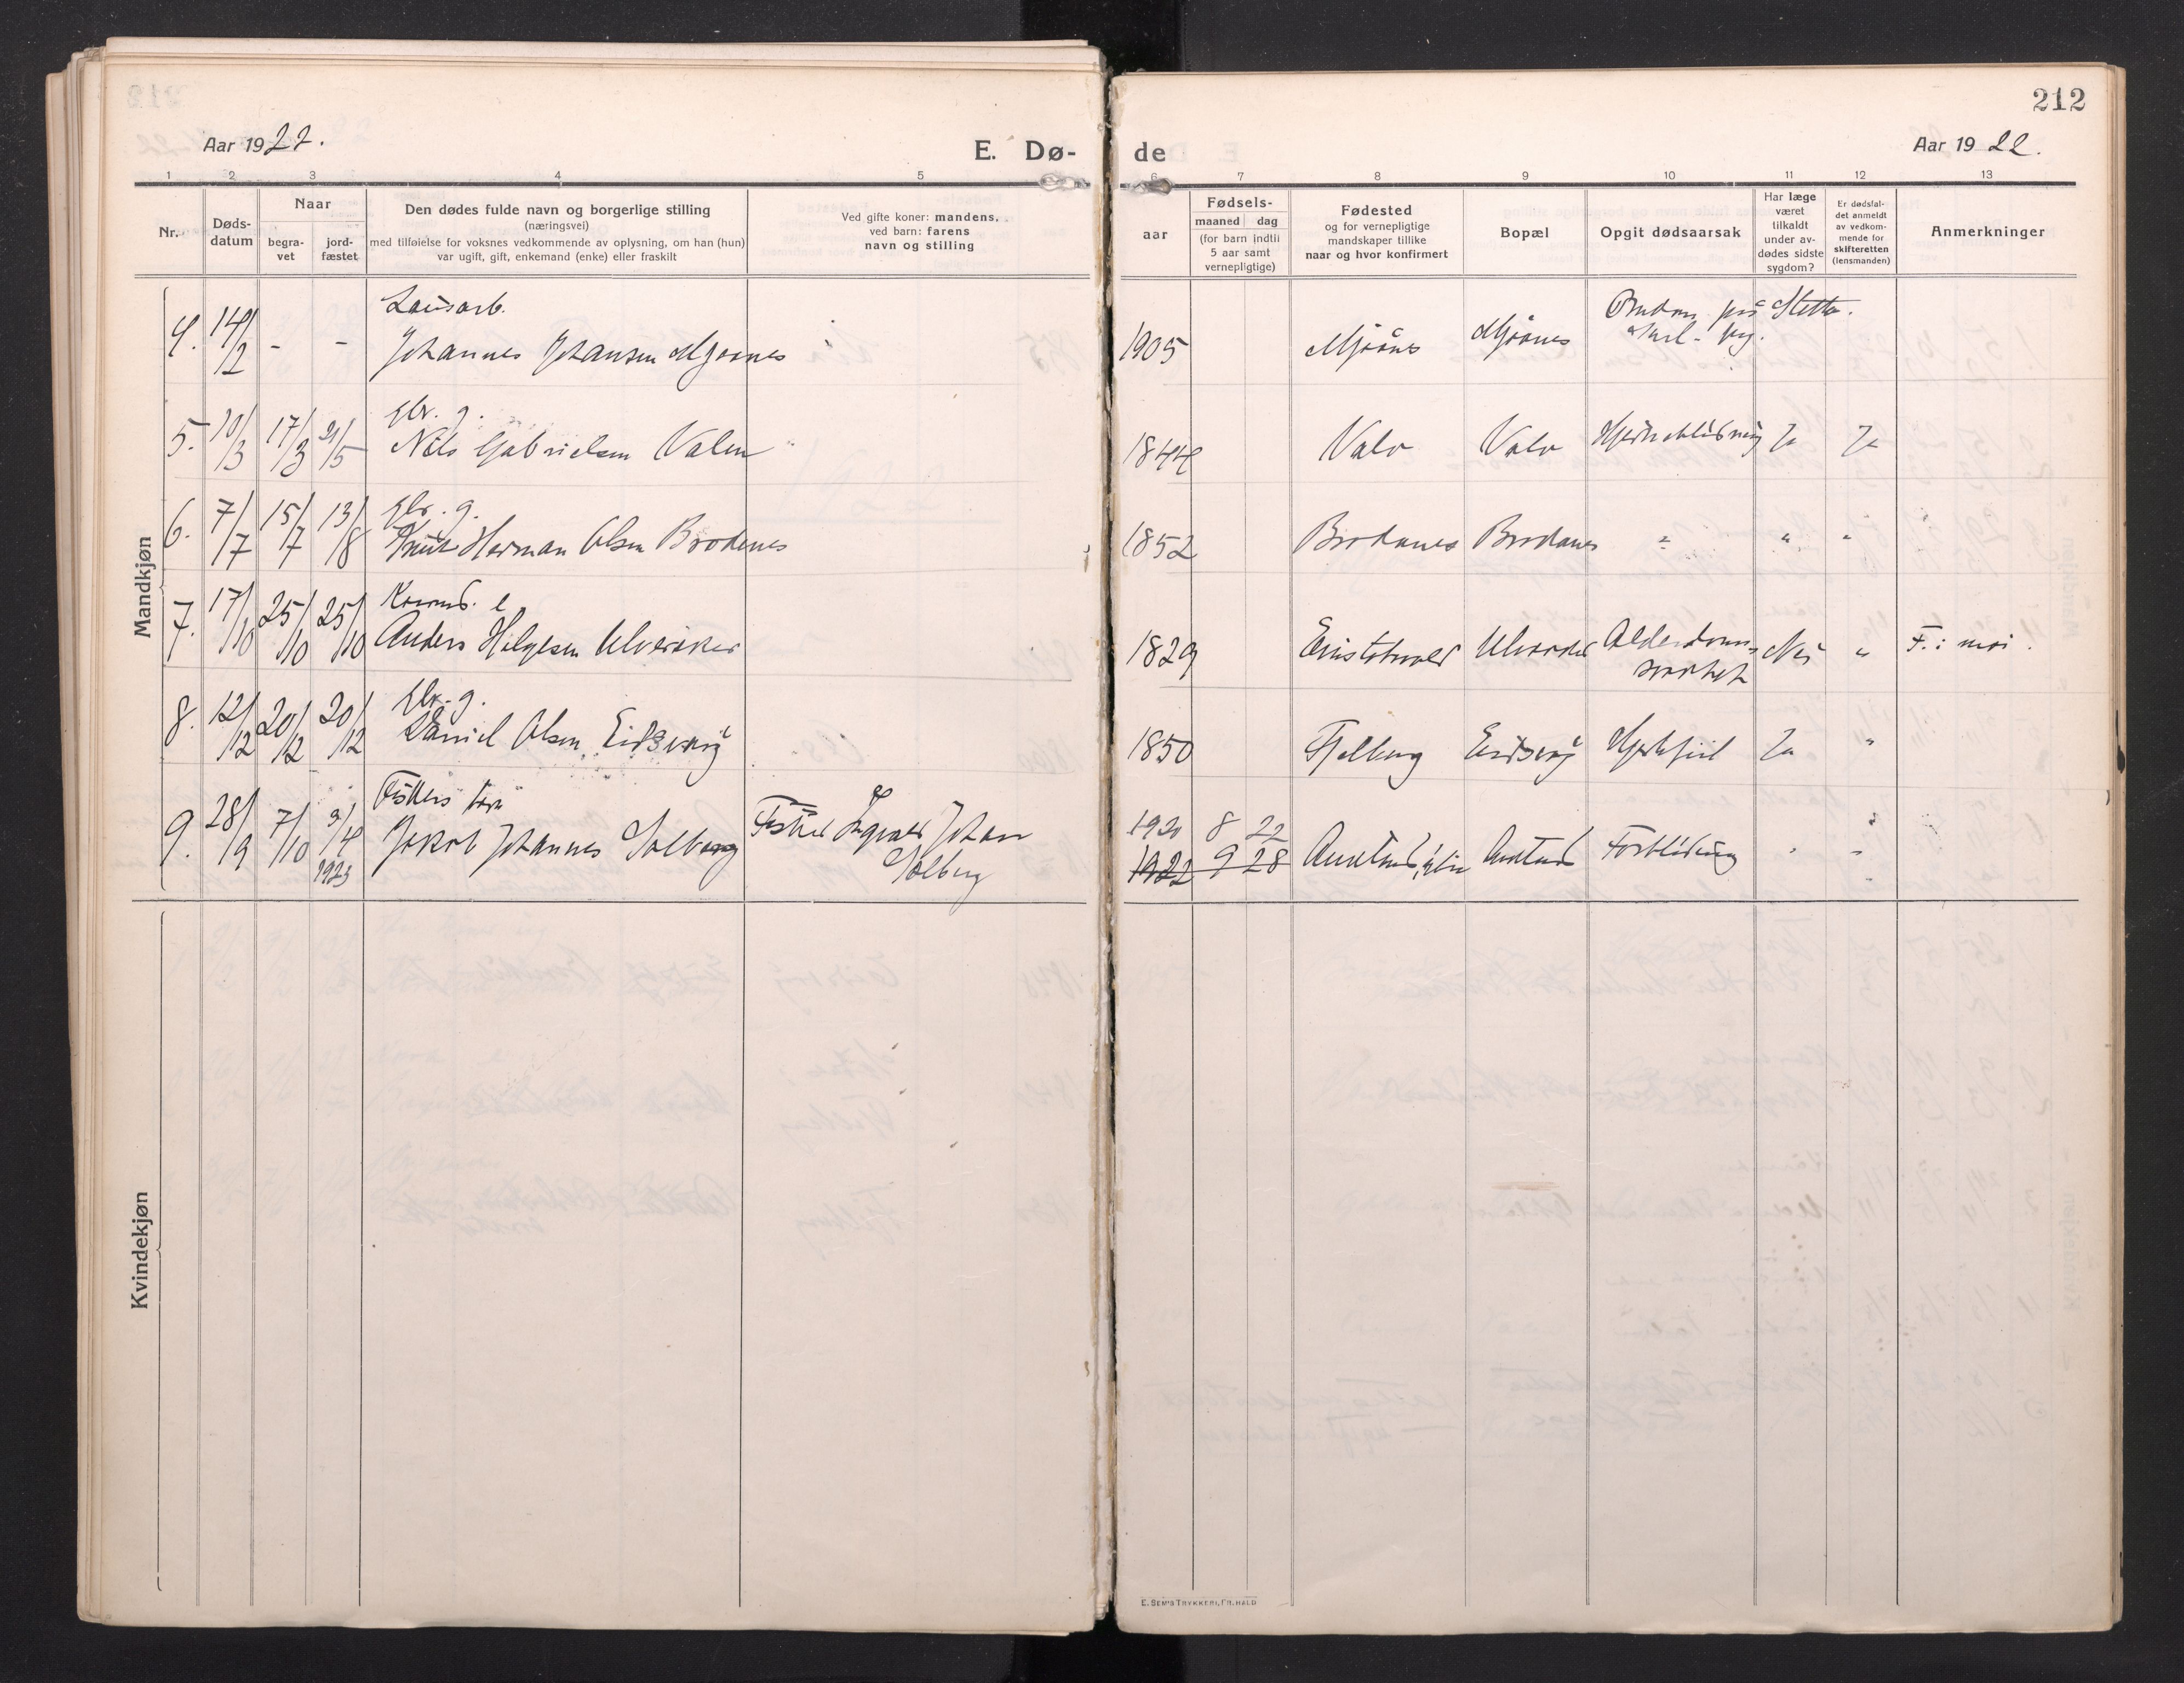 212
Aar 1922.
E. Dø-
de
Aar 1922.
1 2 3 4 5 6 7 8 9 10 11 12 13
Nr.
Døds-
datum
Naar
begra-
vet
jord-
fæstet
Den dødes fulde navn og borgerlige stilling
(næringsvei)
med tilføielse for voksnes vedkommende av oplysning, om han (hun)
var ugift, gift, enkemand (enke) eller fraskilt
Ved gifte koner: mandens,
ved barn: farens
navn og stilling
Fødsels-
aar
maaned dag
(for barn indtil
5 aar samt
vernepligtige)
Fødested
og for vernepligtige
mandskaper tillike
naar og hvor konfirmert
Bopæl
Opgit dødsaarsak
Har læge
været
tilkaldt
under av-
dødes sidste
sygdom?
Er dødsfal-
det anmeldt
av vedkom-
mende for
skifteretten
(lensmanden)
Anmerkninger
Mandkjøn
Lausarb.
4. 14/2 - - Johannes Johansen Mjaanes 1905 Mjåns Mjånes
på
5. 10/3 17/3 21/5 gbr. g.
Nils Gabrielsen Valen 1844 Valo Valo Hjerneblødning Ja Ja
6. 7/7 15/7 13/8 gbr. g.
Knut Herman Olsen Brodanes 1852 Brodanes Brodanes " " "
7. 17/10 25/10 25/10 e
Anders Helgesen Ulveraker 1829 Ulveraker Alderdoms-
svakhet Nei " F.: mai.
8. 12/12 20/12 20/12 gbr. g.
Daniel Olsen Eidsvåg 1850 Fjelberg Eidsvåg Hjertefeil Ja "
9. 28/9 7/10 9/4
1923
Fiskers
Jakob Johannes Solberg Fisker Ingvald Johan
Solberg
1920 8 22
1922 9 28 Forblødning " "
Kvindekjøn
E. SEM'S TRYKKERI, FR.HALD